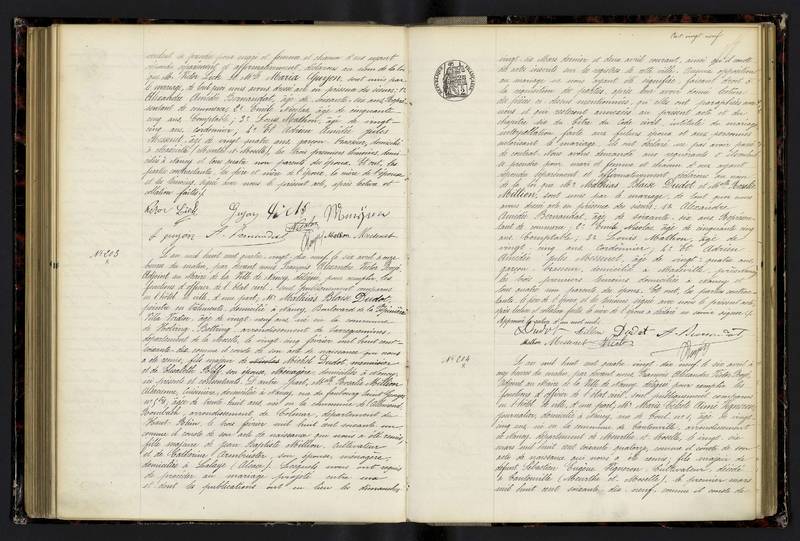 vouloir se prendre pour mari et femme et chacun d'eux ayant
répondu séparément et affirmativement, déclarons au nom de la loi
que Mr Victor Lich et Mlle Maria Guyon, sont unis par
le mariage, de tout quoi nous avons dressé acte en présence des sieurs: 1º
Alexandre Amédée Bernardat, âgé de soixante six ans,
de commerce, 2º Emile Nicolas, âgé de cinquante
cinq ans, Comptable; 3º Louis Mathon, âgé de vingt
cinq ans, Cordonnier; 4º Et Adrien Amédée Jules
Messenet, âgé de vingt quatre ans, garçon brasseur, domicilié
à (Meurthe et Moselle), les trois premiers témoins, domi-
ciliés à Nancy et tous quatre non parents des époux. Et ont, les
parties contractantes, les père et mère de l'époux, la mère de l'épouse
et les témoins, signé avec nous le présent acte, après lecture et
collation faites.
Victor Lich Guyon
A. Bernardat Nicolas Mathon Messenet
Nº 203
L'an mil huit cent quatre vingt dix neuf, le six avril à onze
heures du matin, par devant nous François Alexandre Victor
Adjoint au Maire de la Ville de Nancy, délégué, pour remplir les
fonctions d'officier de l'état civil, sont publiquement comparus
en l'hôtel de ville, d'une part, Mr Mathias Blaise Dudot,
peintre en bâtiments, domicilié à Nancy, Boulevard de la Pépinière
Villa, âgé de vingt neuf ans, né en la commune
de, arrondissement de Sarreguemines,
département de la Moselle, le vingt cinq février mil huit cent
soixante dix, comme il conste de son acte de naissance qui nous
a été remis, fils majeur de Michel Dudot, menuisier
et de Elisabeth, son épouse, Ménagère, domiciliés à Nancy,
ici présents et consentants. D'autre part, Mlle Rosalie Million
Alsacienne, Cuisinière, domiciliée à Nancy, rue du faubourg Saint Georges
âgée de trente huit ans, née en la commune de
arrondissement de Colmar, département du
Haut-Rhin, le trois février mil huit cent soixante un,
comme il conste de son acte de naissance qui nous a été remis,
fille majeure de Jean Baptiste Million, Cultivateur
et de Catherine, son épouse, ménagère,
domiciliés à Lalaye (Alsace). Lesquels nous ont requis
de procéder au mariage projeté entre eux
et dont les publications ont eu lieu les dimanches
Cent vingt neuf
vingt six Mars dernier et deux avril courant, ainsi qu'il conste
de acte inscrits sur le registre de cette ville. Aucune opposition
au mariage ne nous ayant été signifiée, faisant droit à
la réquisition des parties, après leur avoir donné lecture
des pièces ci dessus mentionnées, qu'elles ont paraphées avec
nous et qui resteront annexées au présent acte et du
chapitre six du titre du Code civil intitulé du mariage,
interpellation faite aux futurs époux et aux personnes
autorisant le mariage, ils ont déclaré ne pas avoir passé
de contrat. Nous avons demandé aux requérants s'ils veulent
se prendre pour mari et femme et chacun d'eux ayant
répondu séparément et affirmativement, déclarons au nom
de la loi que Mr Mathias Blaise Dudot et Mlle Rosalie
Million, sont unis par le mariage, de tout quoi nous
avons dressé acte en présence des sieurs: 1º Alexandre
Amédée Bernardat, âgé de soixante six ans,
de commerce; 2º Emile Nicolas, âgé de cinquante cinq
ans, Comptable; 3º Louis Mathon, âgé de
vingt cinq ans, Cordonnier; 4º Et Adrien
Amédée Jules Messenet, âgé de vingt quatre ans,
garçon brasseur, domicilié à
les trois premiers témoins domiciliés à Nancy et
tous quatre non parents des époux. Et ont, les parties contrac-
tantes, le père de l'époux et les témoins signé avec nous le présent acte,
après lecture et collation faites, la mère de l'époux a déclaré ne savoir signer.
Dudot Million Dudot A. Bernardat
Mathon Messenet Nicolas
Nº 204
L'an mil huit cent quatre vingt dix neuf, le six avril à
heures du matin, par devant nous François Alexandre Victor
Adjoint au Maire de la Ville de Nancy, délégué pour remplir les
fonctions d'officier de l'état civil, sont publiquement comparus
en l'hôtel de ville, d'une part, Mr Marie Célestin Aimé
journalier, domicilié à Nancy, rue, âgé de vingt
cinq ans, né en la commune de, arrondissement
de Nancy, département de Meurthe et Moselle, le vingt six
mars mil huit cent soixante quatorze, comme il conste de son
acte de naissance qui nous a été remis, fils majeur de
défunt Sébastien Eugène, Cultivateur, décédé
à (Meurthe et Moselle), le premier mars
mil huit cent soixante dix neuf, comme il conste de